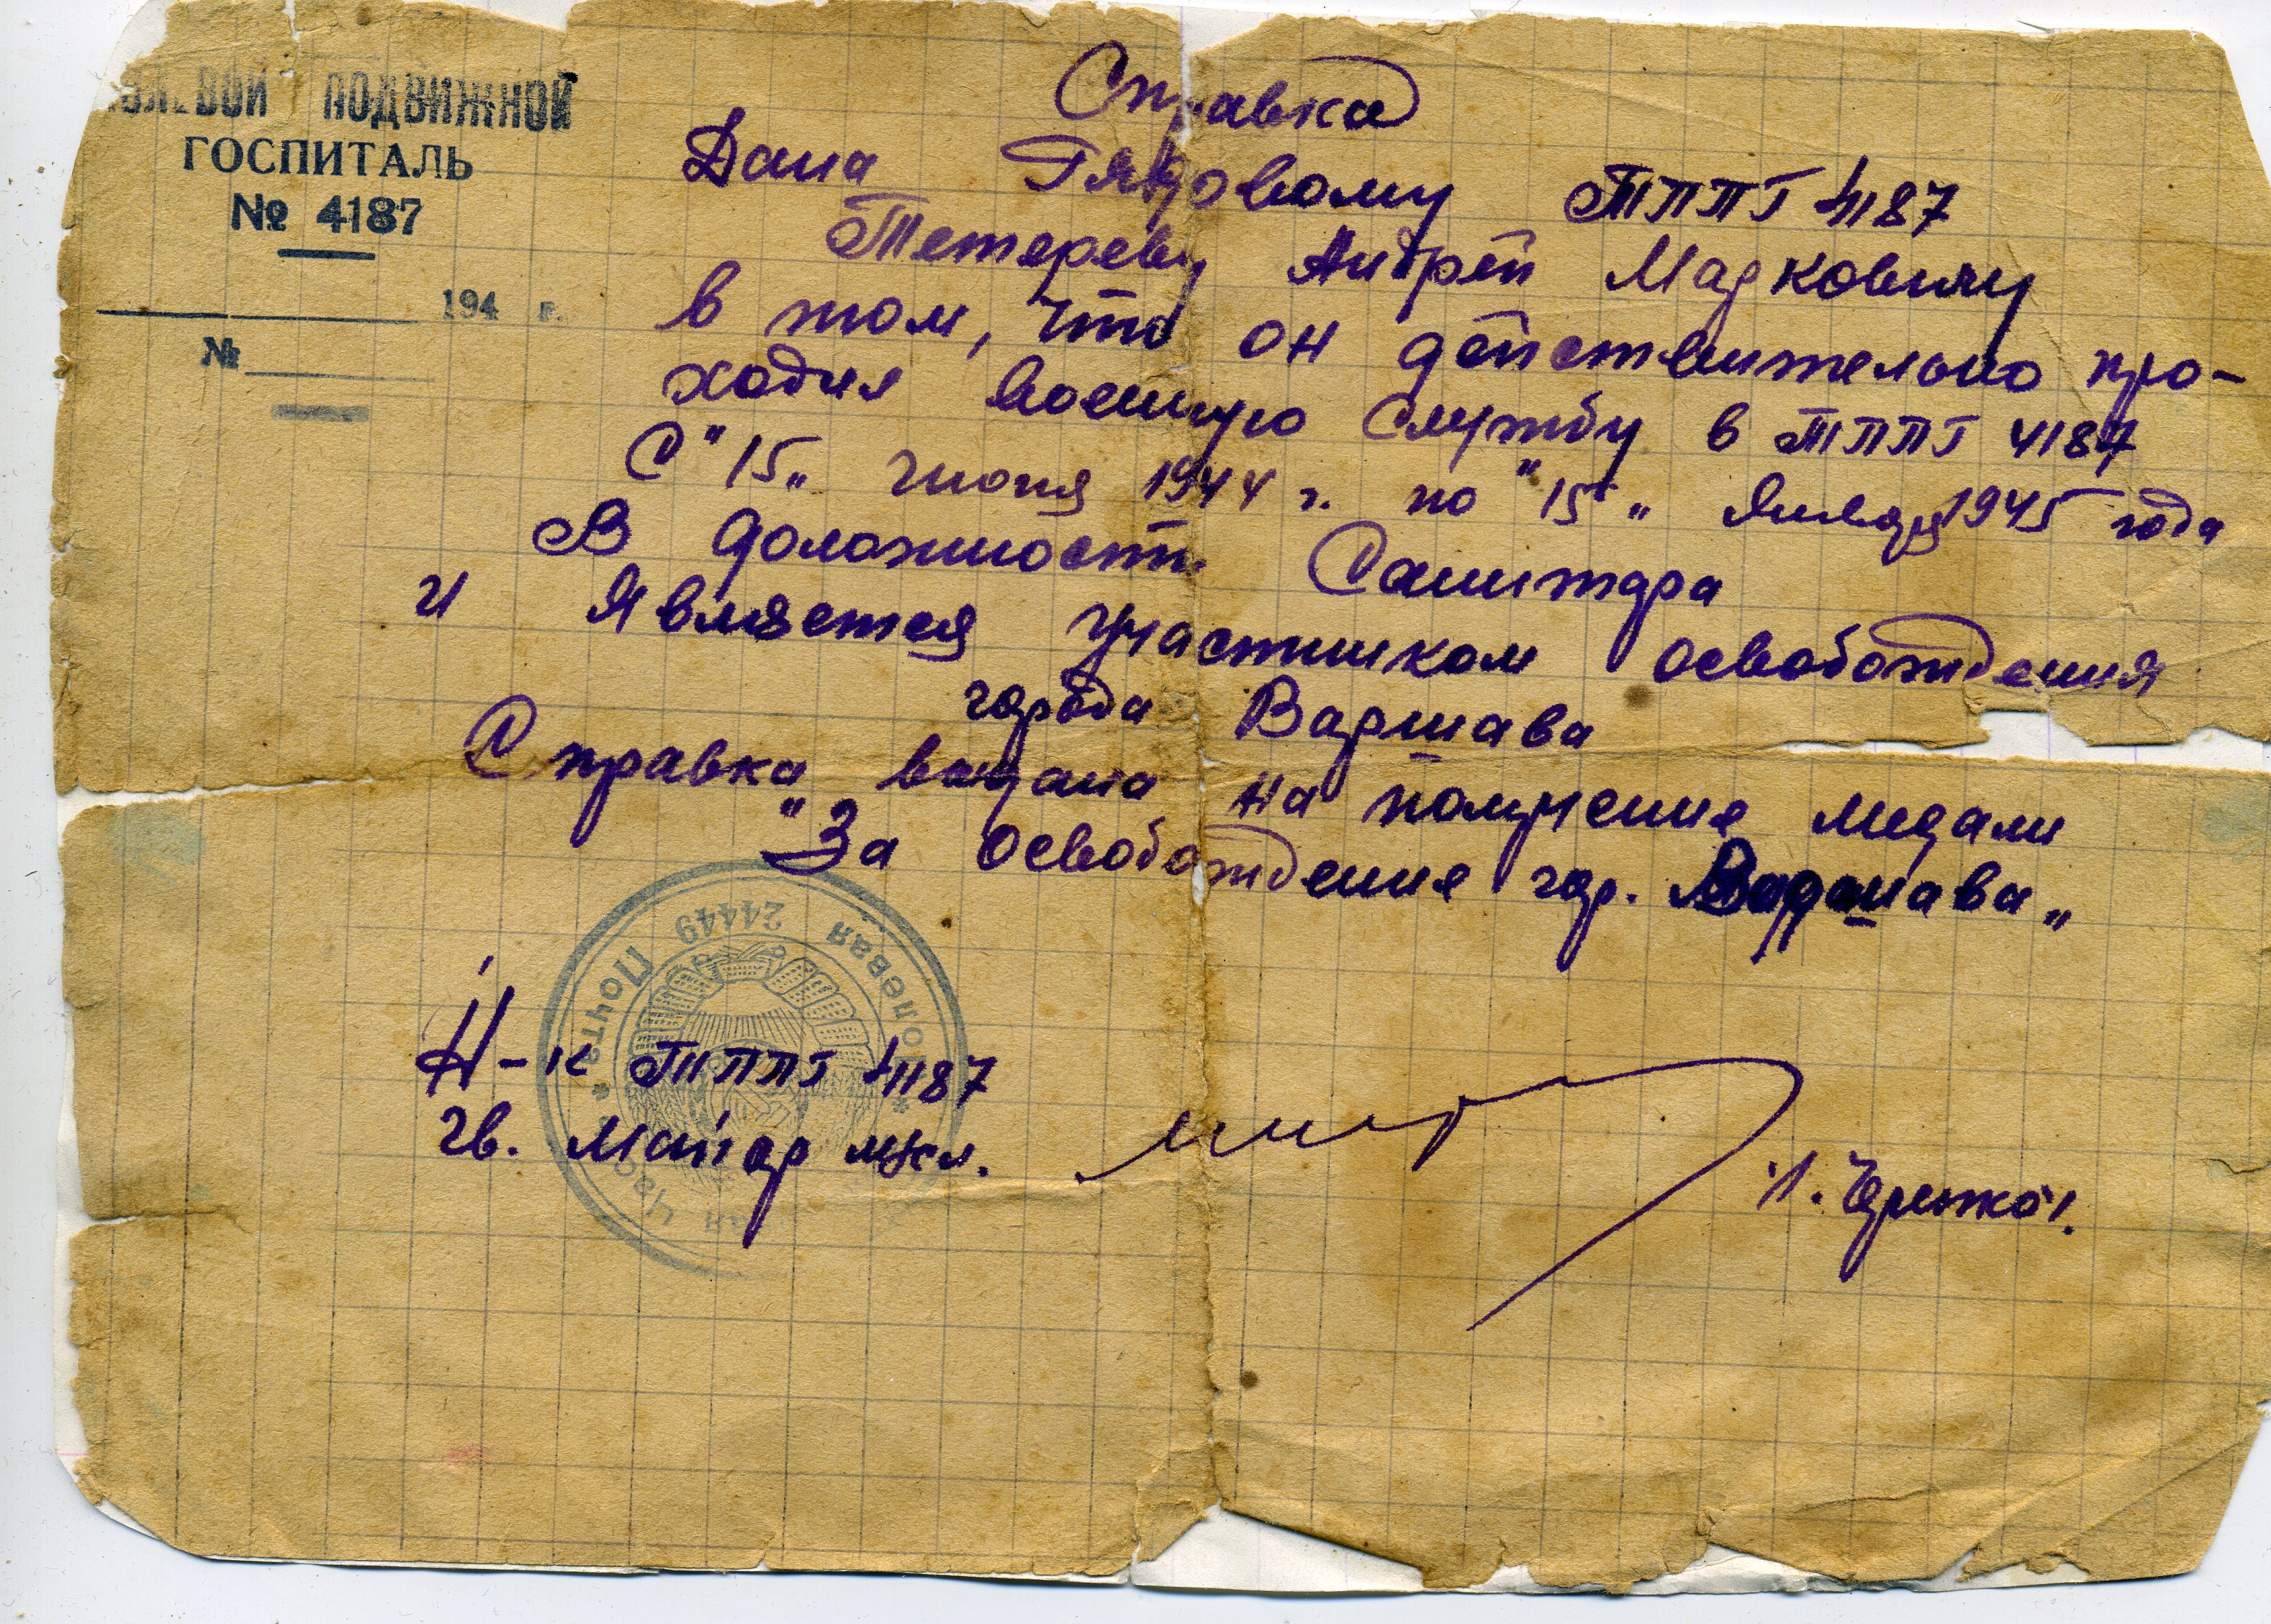 ПОЛЕВОЙ ПОДВИЖНОЙ
ГОСПИТАЛЬ
№ 4187
194 г.
№
Справка
Дана Рядовому ТППГ 4187
Тетереву Андрей Марковичу
в том, что он действительно про-
ходил военную службу в ТППГ 4187
С "15" июня 1944 г. по "15" Января 1945 года
В должности Санитара
и Является участником освобождения
города Варшава
Справка выдана на получение медали
"За освобождение гор. Варшава"
Н-к ТППГ 4187
гв. майор м/сл.
Полевая Почта 24449